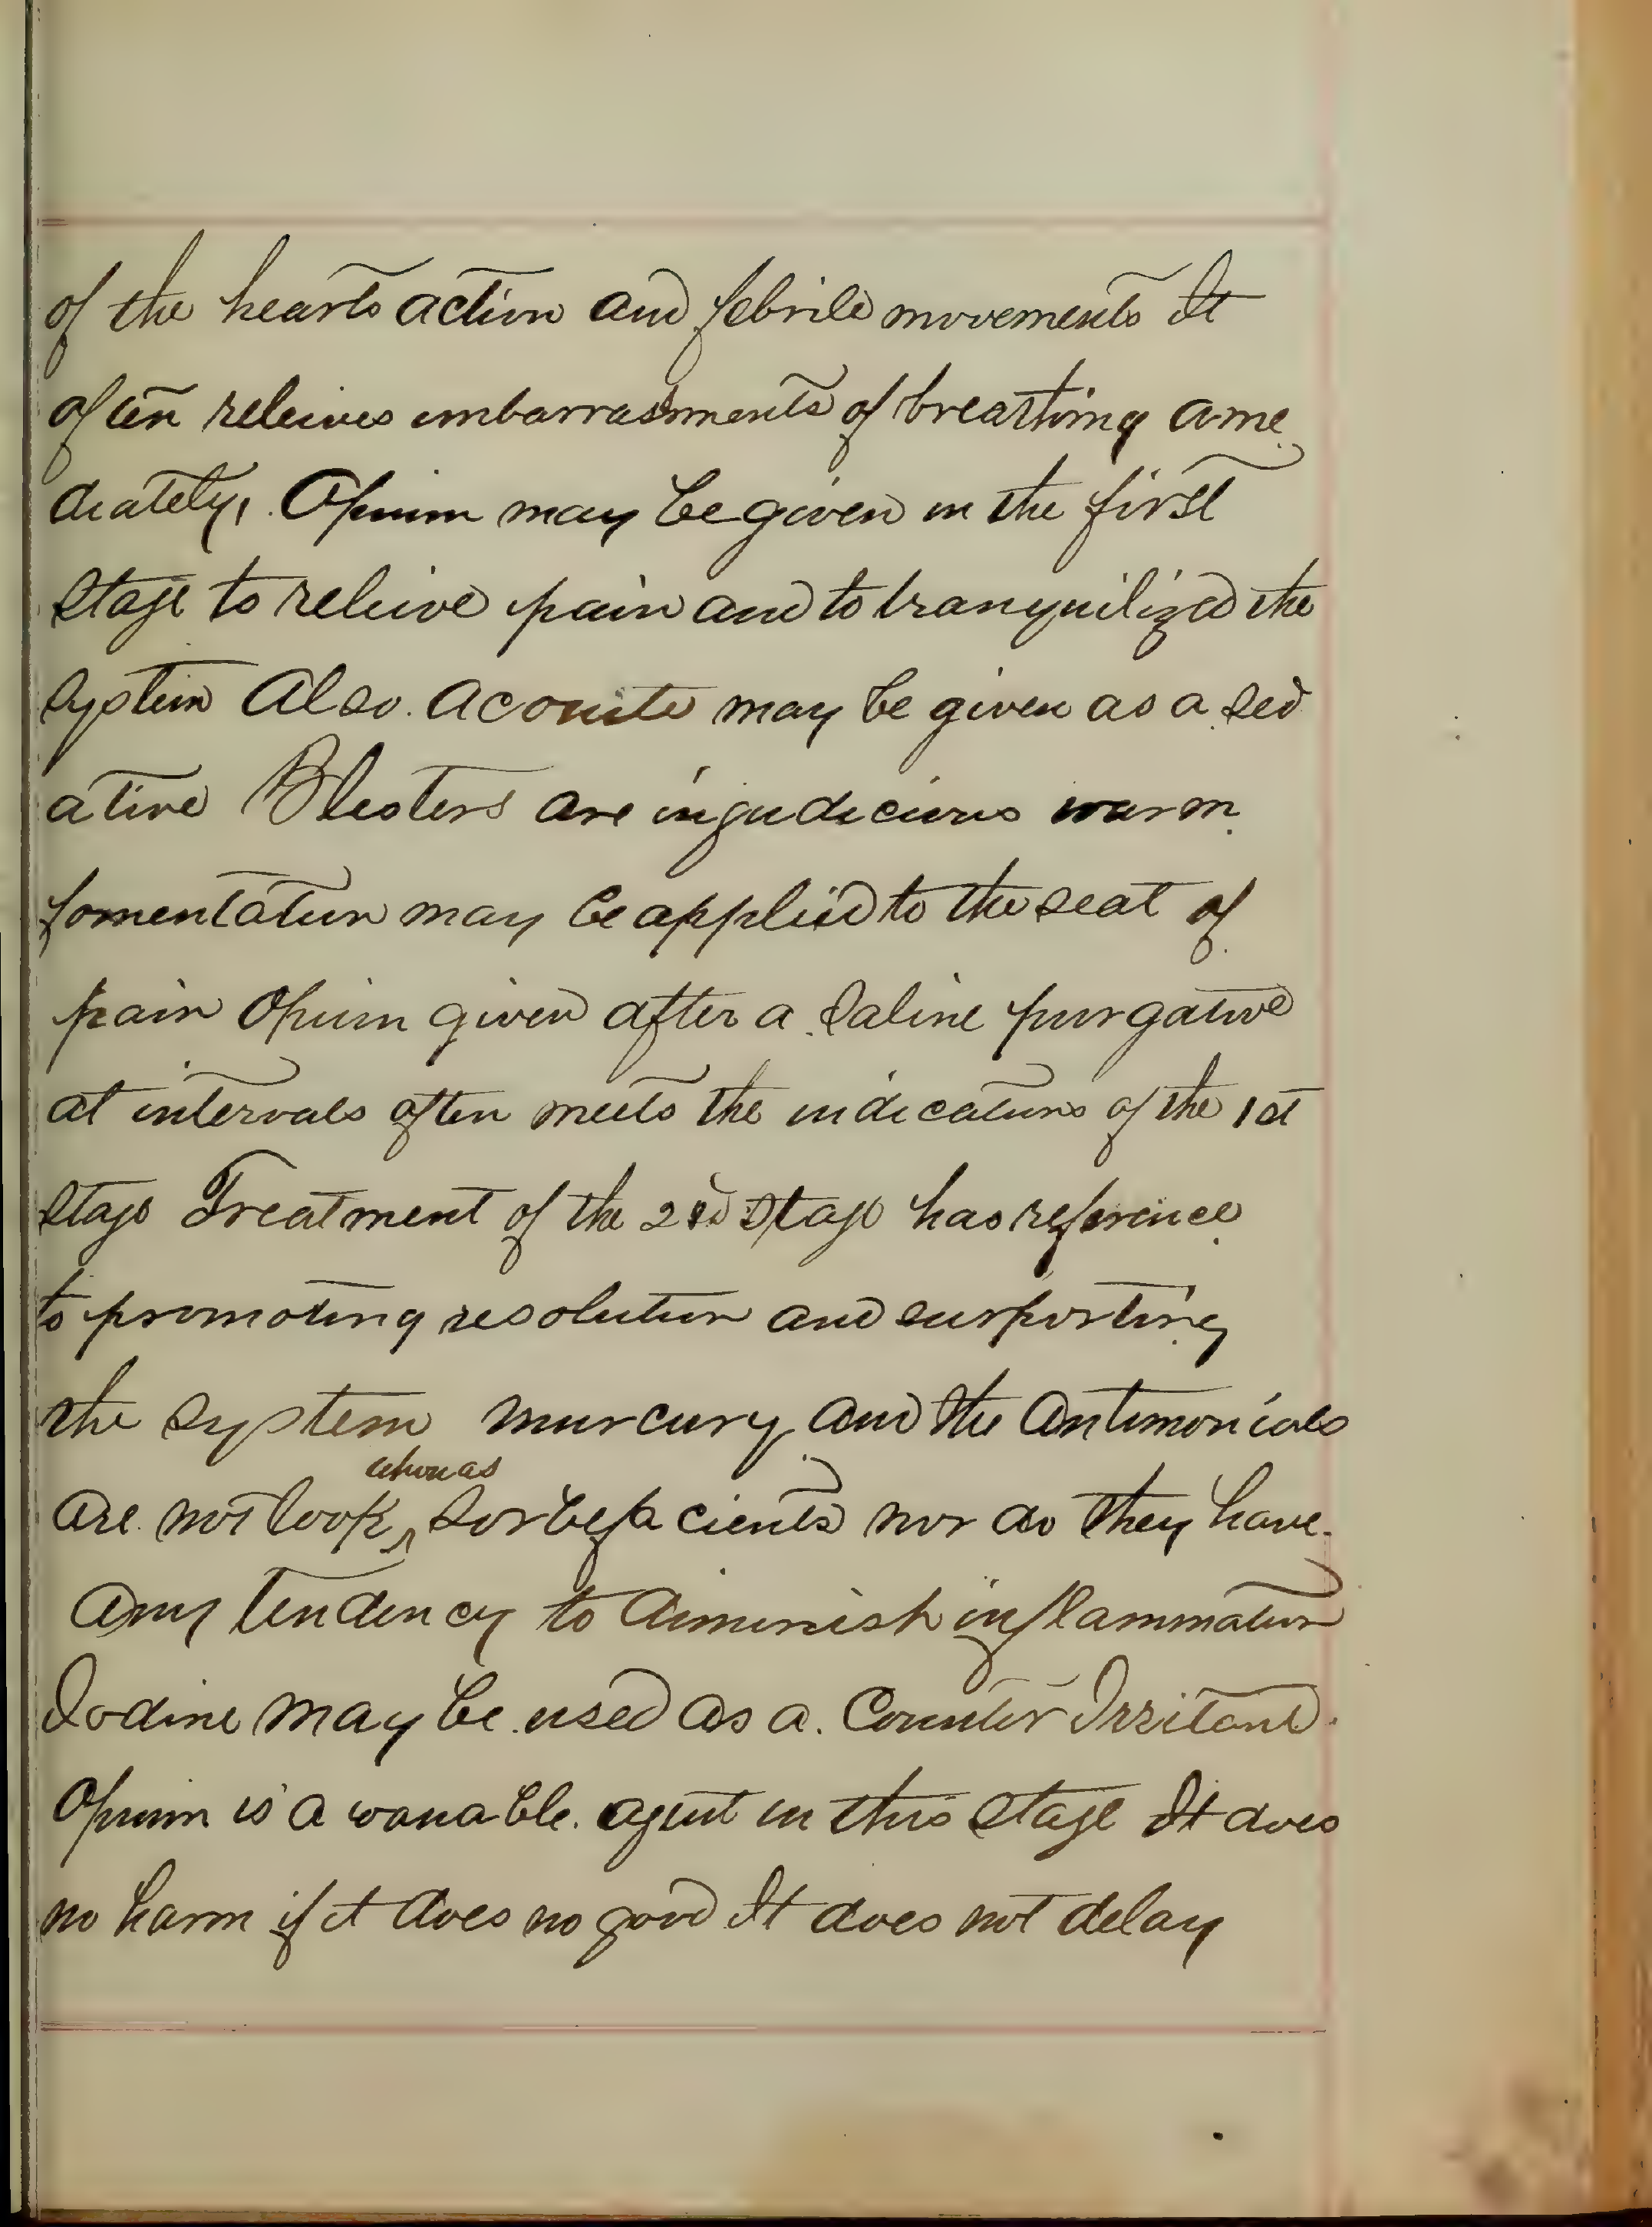 of the hearts action and febrile movements It
often releives embarrassments of breathing ame
diately, Opium may be given in the first
stage to releive pain and to tranquilized the
system Also. Aconite may be given as a sed
ative Blesters are injudicious warm
fomentation may be applied to the seat of
pain Opium given after a saline purgative
at intervals often meets the indications of the 1st
stage Treatment of the 2nd stage has reference
to promoting resolution and surporting
the system murcury and the antimonials
are not look upon as sorbefacients nor do they have
any tendency to diminish inflammation
Iodine may be used as a. Counter Irritant.
Opium is a valuable. agent in this stage It does
no harm if it does no good It does not delay